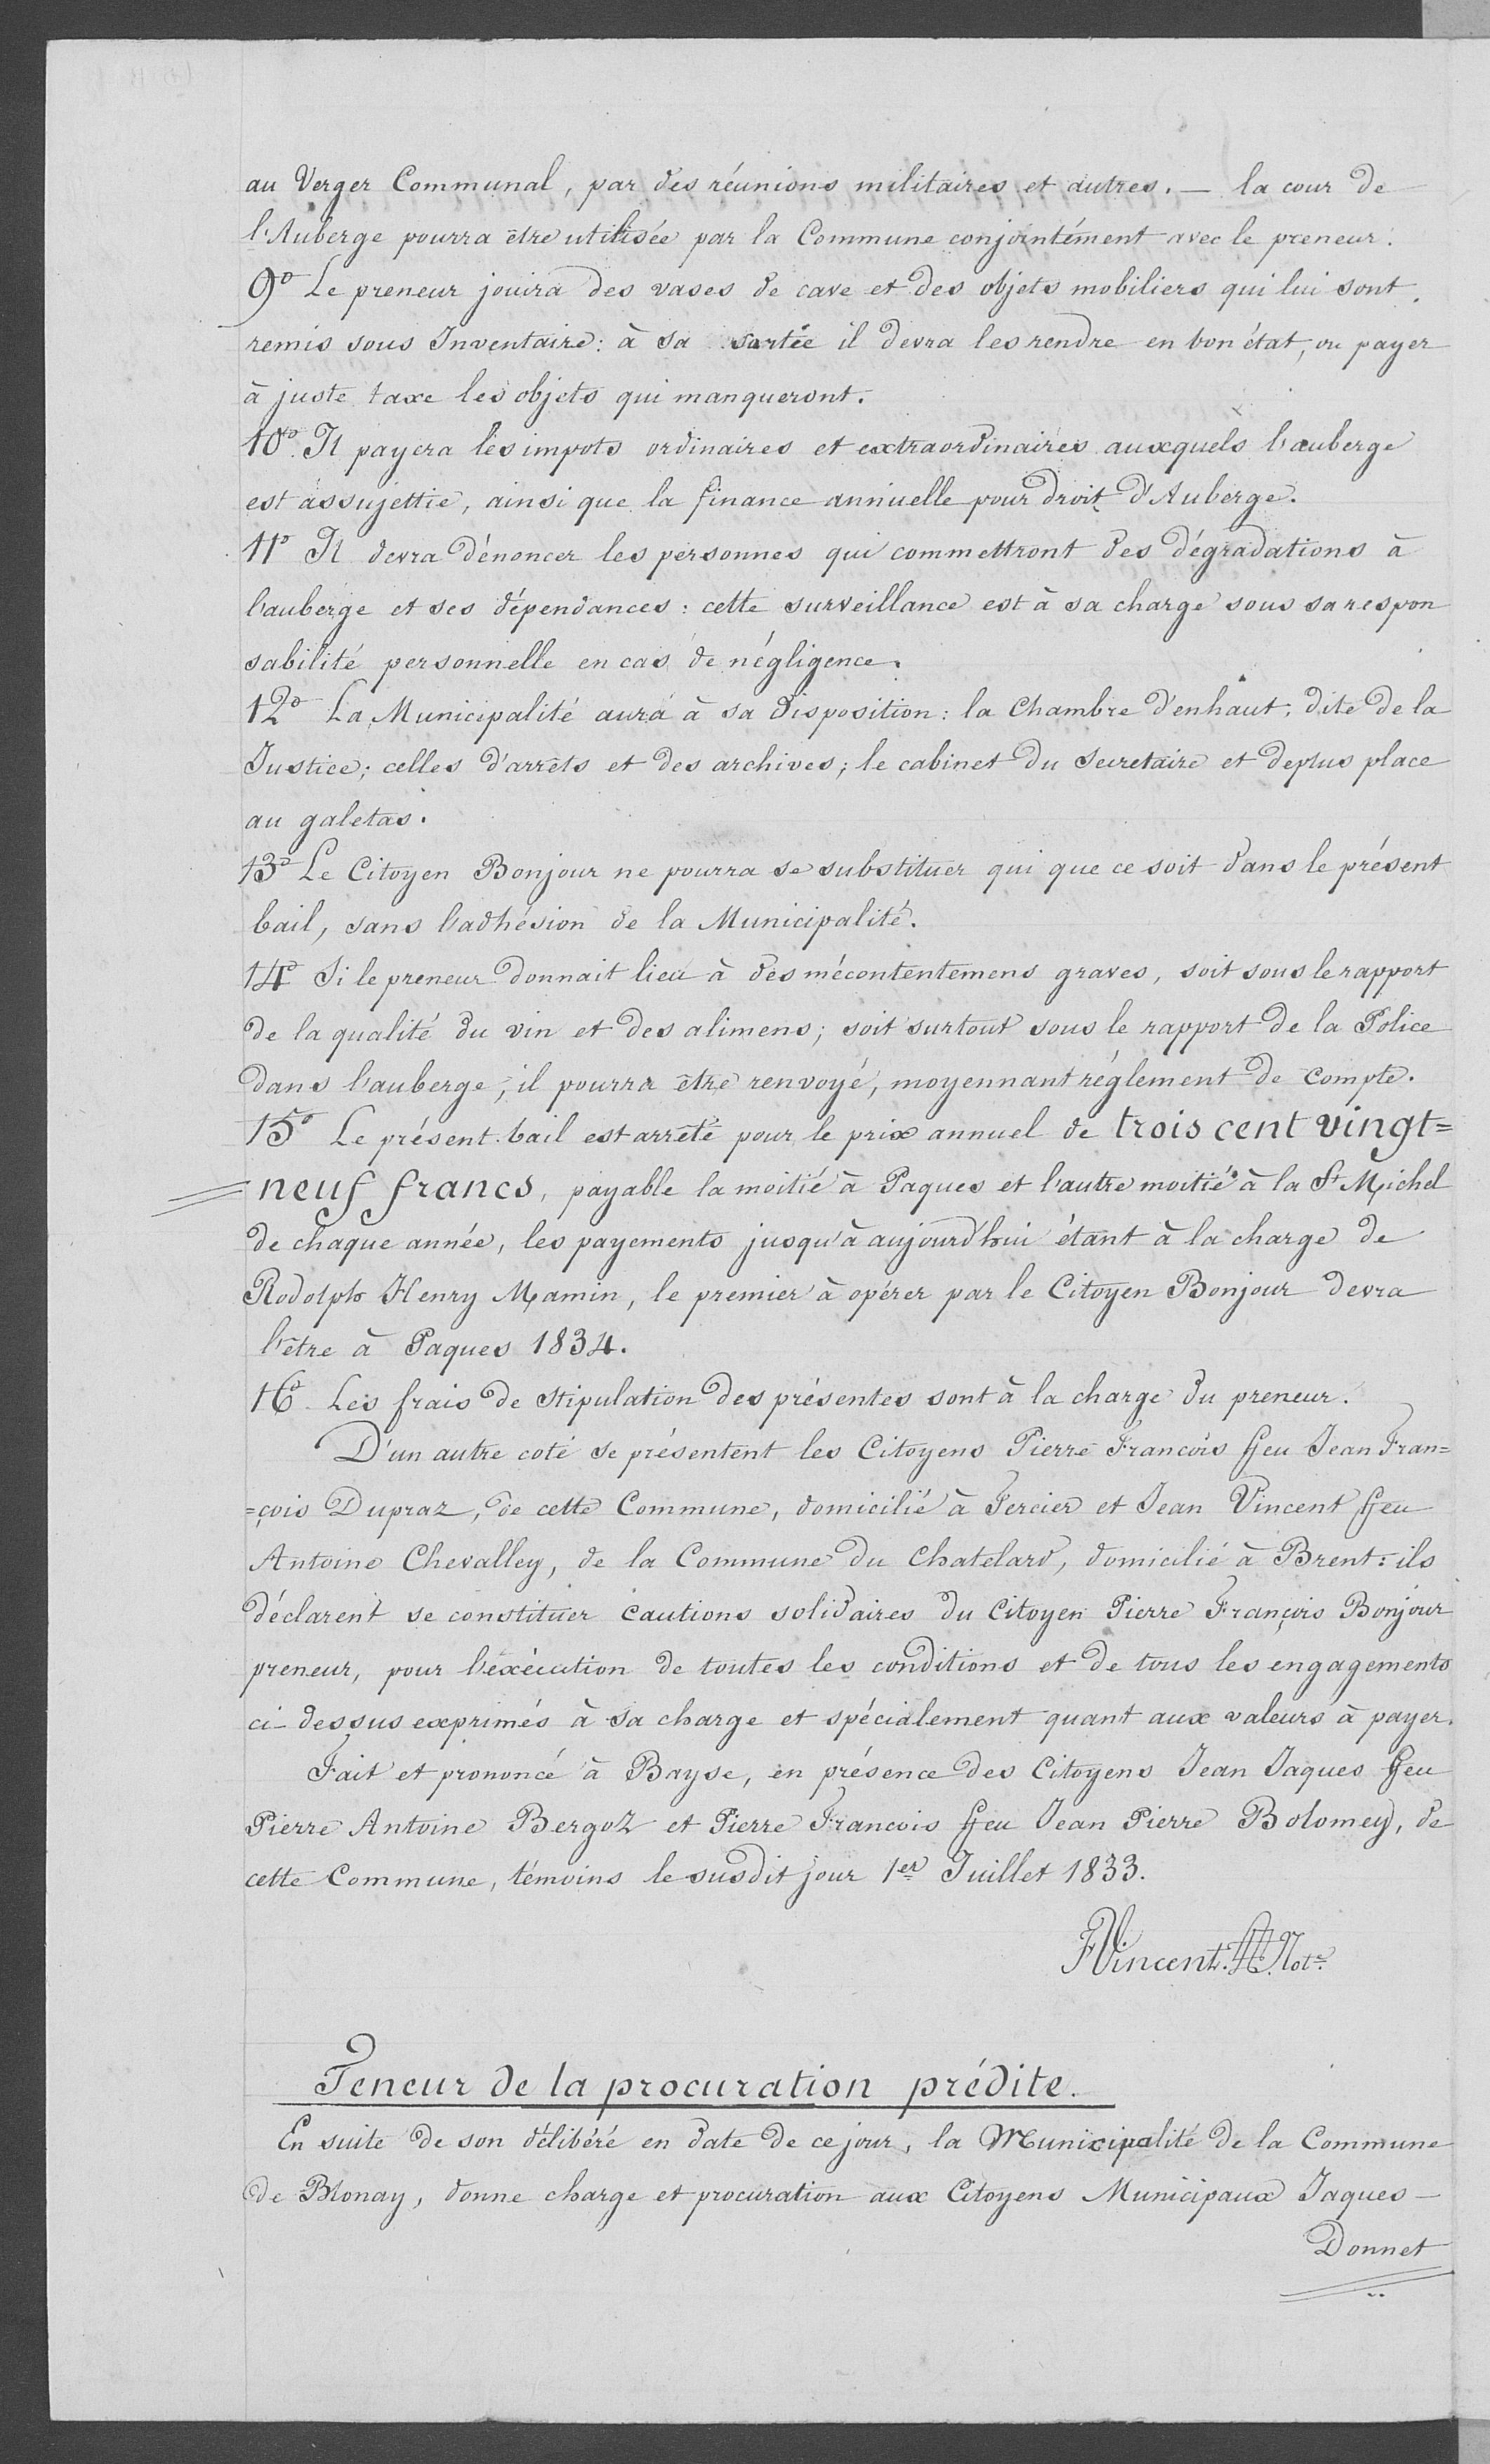 au Verger Communal, par des réunions militaires et autres. — la cour de
l'Auberge pourra être utilisée par la Commune conjointément avec le preneur.
9º Le preneur jouira des vases de cave et des objets mobiliers qui lui sont
remis sous Inventaire: à sa sortée il devra les rendre en bon état, ou payer
à juste taxe les objets qui manqueront.
10º. Il payera les impots ordinaires et extraordinaires auxquels l'auberge
est assujettie, ainsi que la finance annuelle pour droit d'Auberge.
11º Il devra dénoncer les personnes qui commettront des dégradations à
l'auberge et ses dépendances: cette surveillance est à sa charge sous sa respon
sabilité personnelle en cas de négligence.
12º La Municipalité aura à sa disposition: la Chambre d'enhaut, dite de la
Justice; celles d'arrêts et des archives; le cabinet du Secretaire et deplus place
au galetas.
13º Le Citoyen Bonjour ne pourra se substituer qui que ce soit dans le présent
bail, sans l'adhésion de la Municipalité.
14º Si le preneur donnait lieu à des mécontentemens graves, soit sous le rapport
de la qualité du vin et des alimens; soit surtout sous le rapport de la Police
dans l'auberge, il pourra être renvoyé, moyennant réglement de compte.
15º Le présent bail est arrêté pour le prix annuel de trois cent vingt=
neuf francs, payable la moitié à Paques et l'autre moitié à la St Michel
de chaque année, les payements jusqu'à aujourd'hui étant à la charge de
Rodolph Henry Mamin, le premier à opérer par le Citoyen Bonjour devra
l'être à Paques 1834.
16º Les frais de stipulation des présentes sont à la charge du preneur.
D'un autre coté se présentent les Citoyens Pierre Francois ffeu Jean Fran=
=çois Dupraz, de cette Commune, domicilié à Tercier et Jean Vincent ffeu
Antoine Chevalley, de la Commune du Chatelard, domicilié à Brent: ils
déclarent se constituer cautions solidaires du Citoyen Pierre François Bonjour
preneur, pour l'exécution de toutes les conditions et de tous les engagements
ci-dessus exprimés à sa charge et spécialement quant aux valeurs à payer.
Fait et prononcé à Bayse, en présence des Citoyens Jean Jaques ffeu
Pierre Antoine Bergoz et Pierre Francois ffeu Jean Pierre Bolomey, de
cette Commune, témoins le susdit jour 1er Juillet 1833.
FVincent. Notre
Teneur de la procuration prédite.
En suite de son délibéré en date de ce jour, la Municipalité de la Commune
de Blonay, donne charge et procuration aux Citoyens Municipaux Jaques —
Donnet